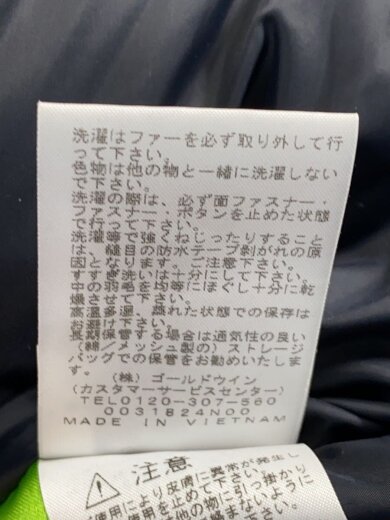 洗濯はファーを必ず取り外して行
って下さい。
色物は他の物と一緒に洗濯しない
で下さい。
洗濯の際は、必ず面ファスナー・
ファスナー・ボタンを止めた状態
で行って下さい。
洗濯等で強くねじったりすること
は、縫目の防水テープ剥がれの原
因となります。ご注意下さい。
すすぎ洗いは十分にして下さい。
中の羽毛を均等にほぐし十分に乾
燥させて下さい。
高温多湿、蒸れた状態での保存は
お避け下さい。
長期保管する場合は通気性の良い
(綿/メッシュ製の)ストレージ
バッグでの保管をお勧めいたしま
す。
(株)ゴールドウイン
(カスタマーサービスセンター)
TEL0120-307-560
0031824N00
MADE IN VIETNAM
注意
使用により皮膚に異常が発生し
使用を止めて下さい。
他の物に引っ掛かり
絡まないように